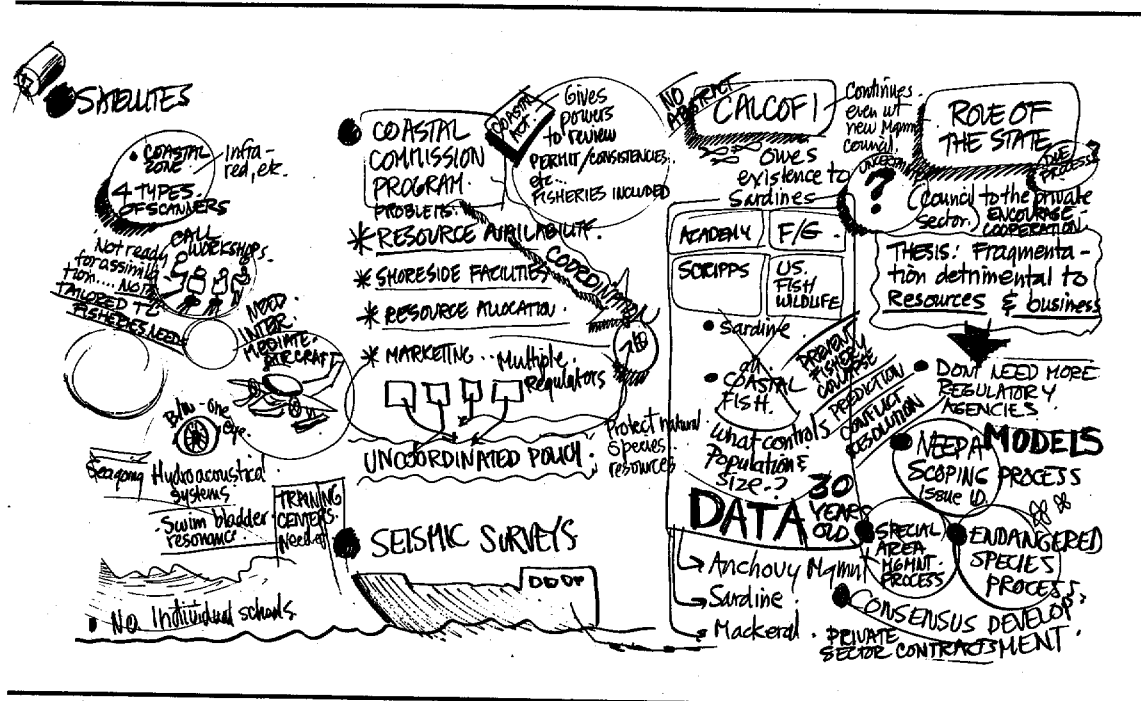 SATELLITES
• COASTAL
ZONE
Infra-
red, etc.
4 TYPES
OF SCANNERS
Not ready
for assimila
tion.... NOT
TAILORED TO
FISHERIES NEED
CALL
WORKSHOPS.
NEED
INTER
MEDIATE.
AIRCRAFT
B/W-one
eye.
Hydroacoustical
systems
Swim bladder
resonance
TRAINING
CENTERS.
Needed
• No Individual schools
COASTAL
COMMISSION
PROGRAM.
PROBLEMS.
COASTAL
ACT.
Gives
powers
to review
PERMIT/CONSISTENCIES..
etc..
FISHERIES INCLUDED
* RESOURCE AVAILABILITY.
* SHORESIDE FACILITIES
* RESOURCE ALLOCATION.
* MARKETING...
COORDINATION
Multiple.
Regulators
UNCOORDINATED POLICY.
Protect natural
Species
resources
SEISMIC SURVEYS
NO
ABSTRACT
CALCOFI
Continues
even w/
new Mgmnt
council.
owes
existence to
Sardines
ACADEMY
F/G.
SCRIPPS
U.S.
FISH
WILDLIFE
• Sardine
all
• COASTAL
FISH.
PREVENT
FISHERY
COLLAPSE
PREDICTION
CONFLICT
RESOLUTION
What controls
Population &
Size.?
DATA
30
YEARS
OLD
Anchovy Mgmnt
Sardine
Mackeral.
ROLE OF
THE STATE
DUE
PROCESS?
?
Council to the private
sector.
ENCOURAGE-
COOPERATION.
THESIS: Fragmenta-
tion detrimental to
Resources & business
DONT NEED MORE
REGULATORY
AGENCIES.
MODELS
NEEPA
SCOPING PROCESS
ISSUE ID.
SPECIAL
AREA
MGMNT.
PROCESS
ENDANGERED
SPECIES
PROCESS.
CONSENSUS DEVELOP
MENT.
PRIVATE
SECTOR CONTRACTS